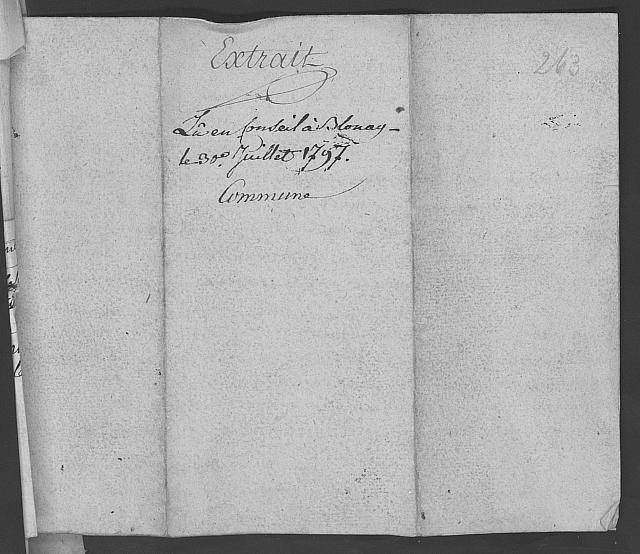 263
Extrait
Lû en Conseil à Blonay
le 30e. Juillet 1797.
Commune